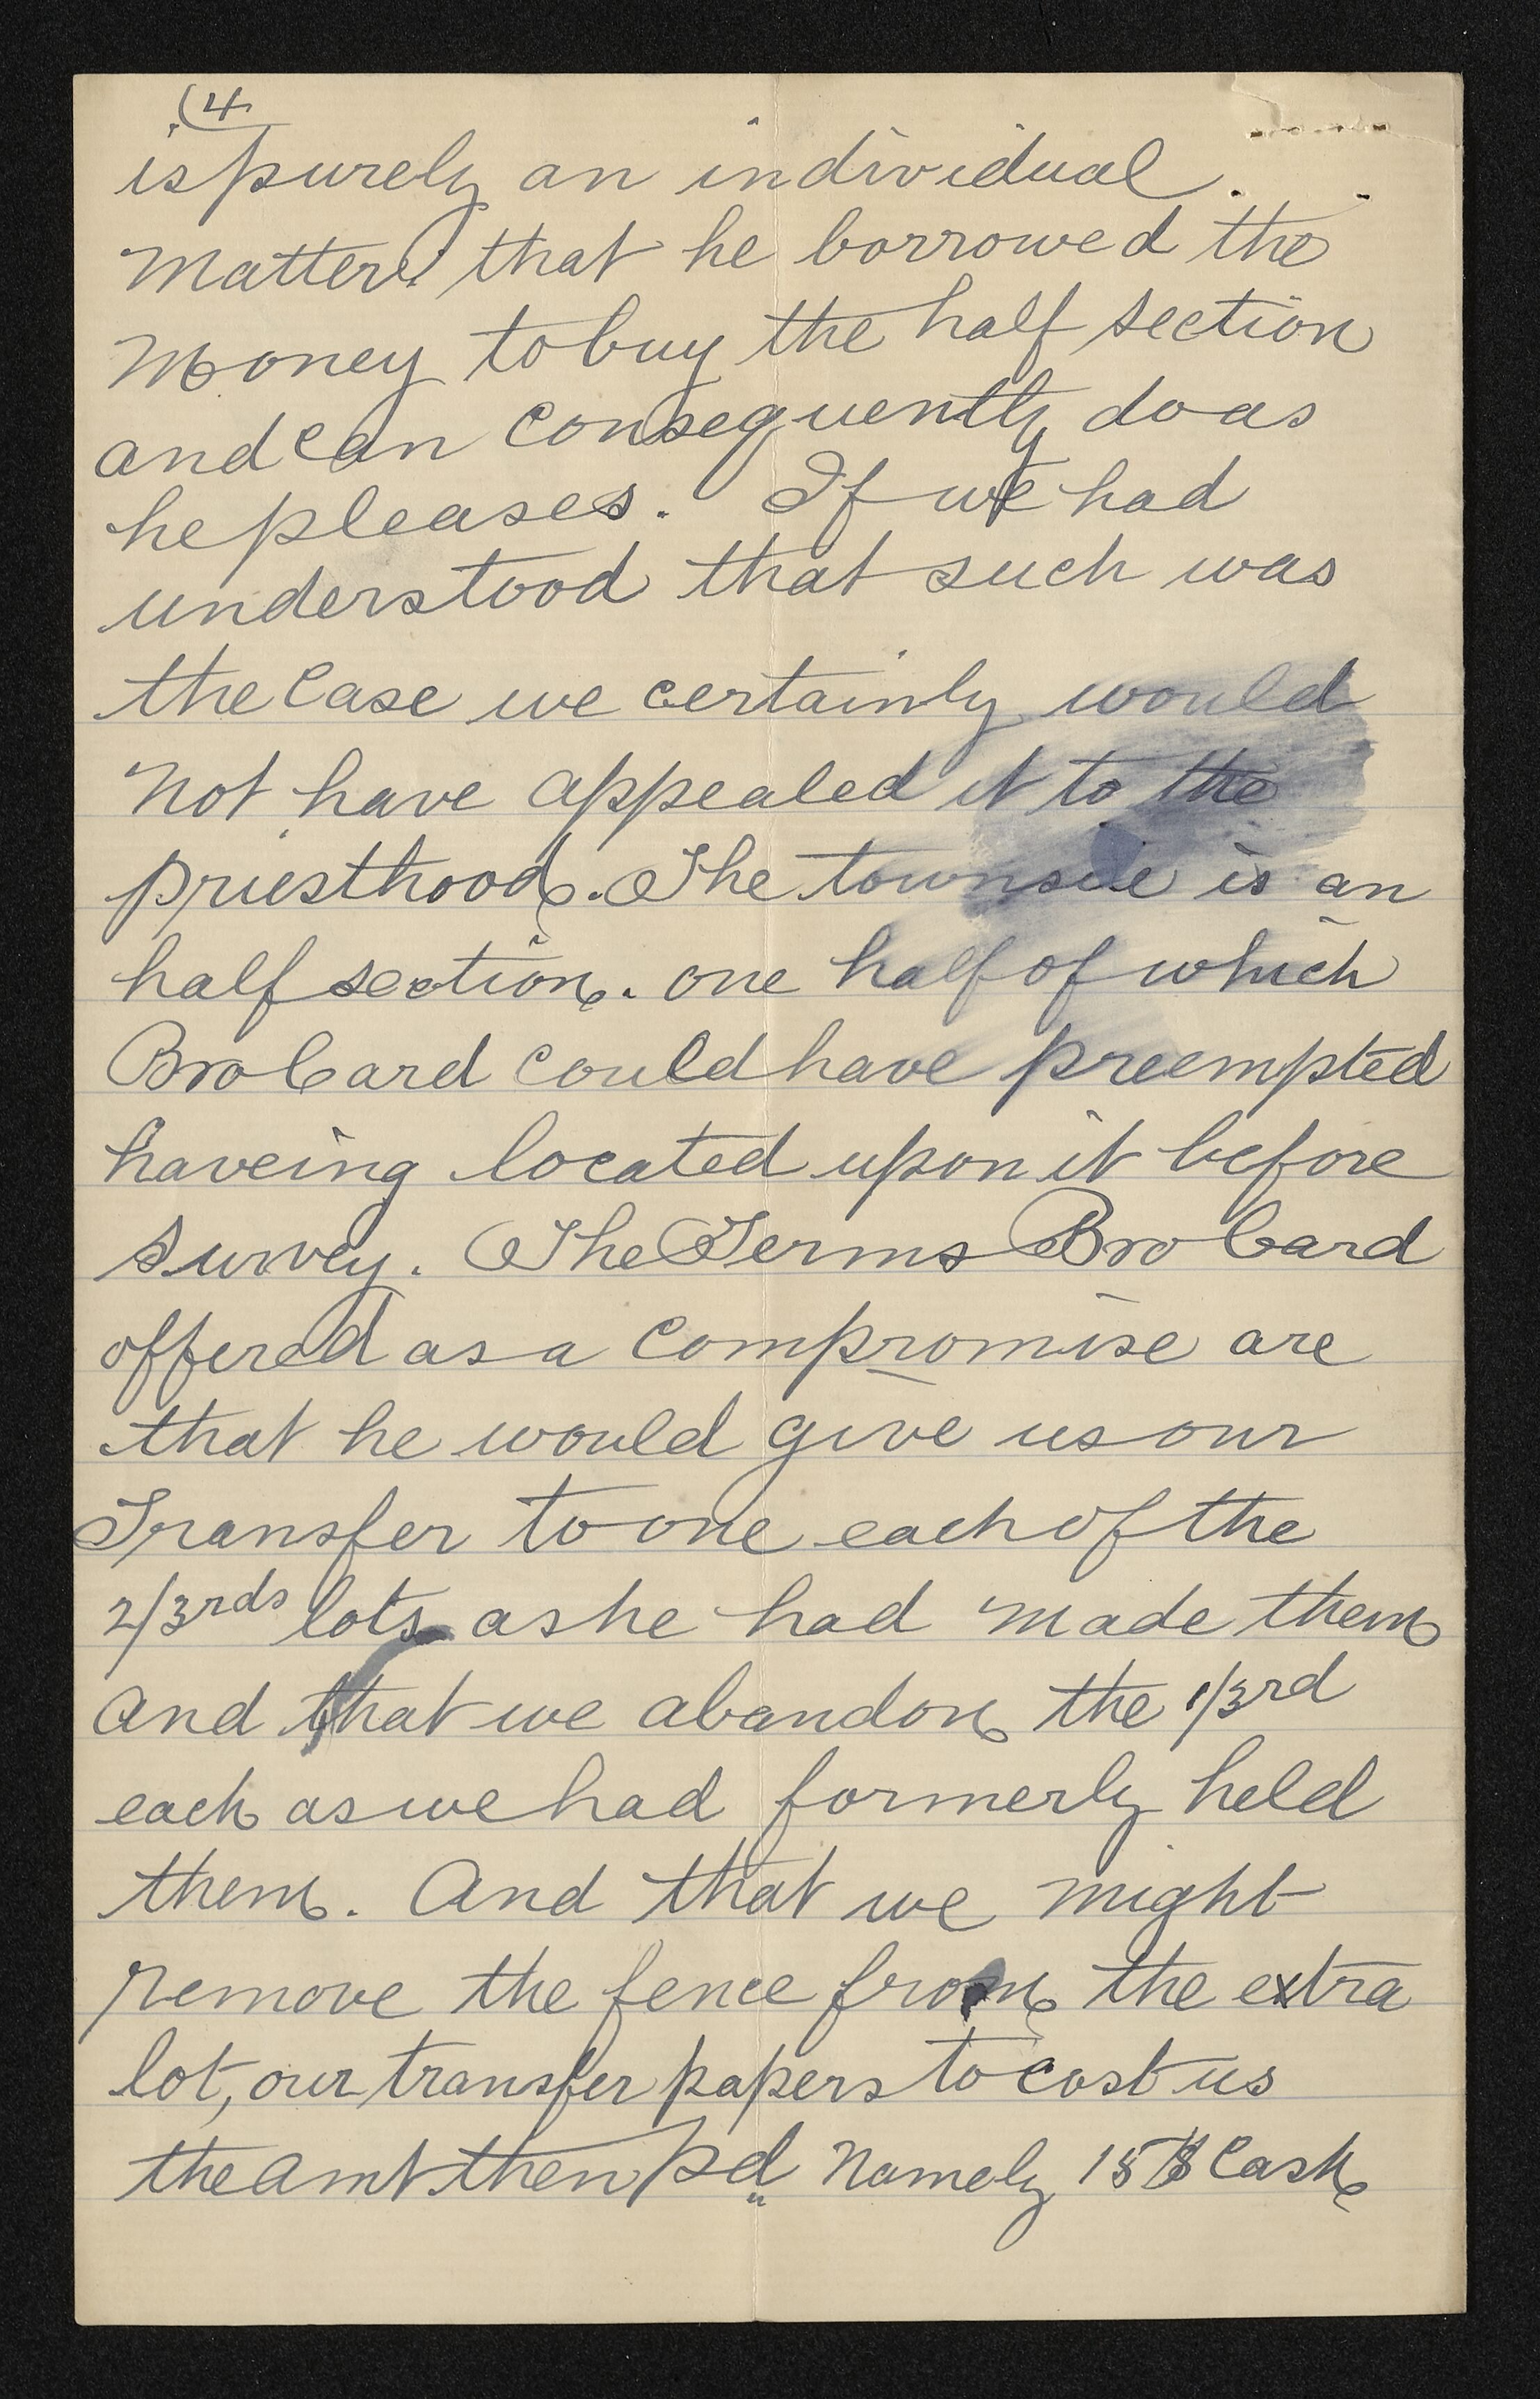 (4
is purely an individual
Matter, that he borrowed the
Money to buy the half section
and can consequently do as
he pleases. If we had
understood that such was
the Case we certainly would
not have appealed it to the
priesthood. The townsite is an
half section. one half of which
Bro Card could have preempted
haveing located upon it before
survey. The Terms Bro Card
offered as a Compromise are
that he would give us our
Transfer to one each of the
2/3rds lots as he had made them
and that we abandon the 1/3rd
each as we had formerly held
them. And that we might
remove the fence from the extra
lot, our transfer papers to cost us
the amt then pd Namely 15$ Cash